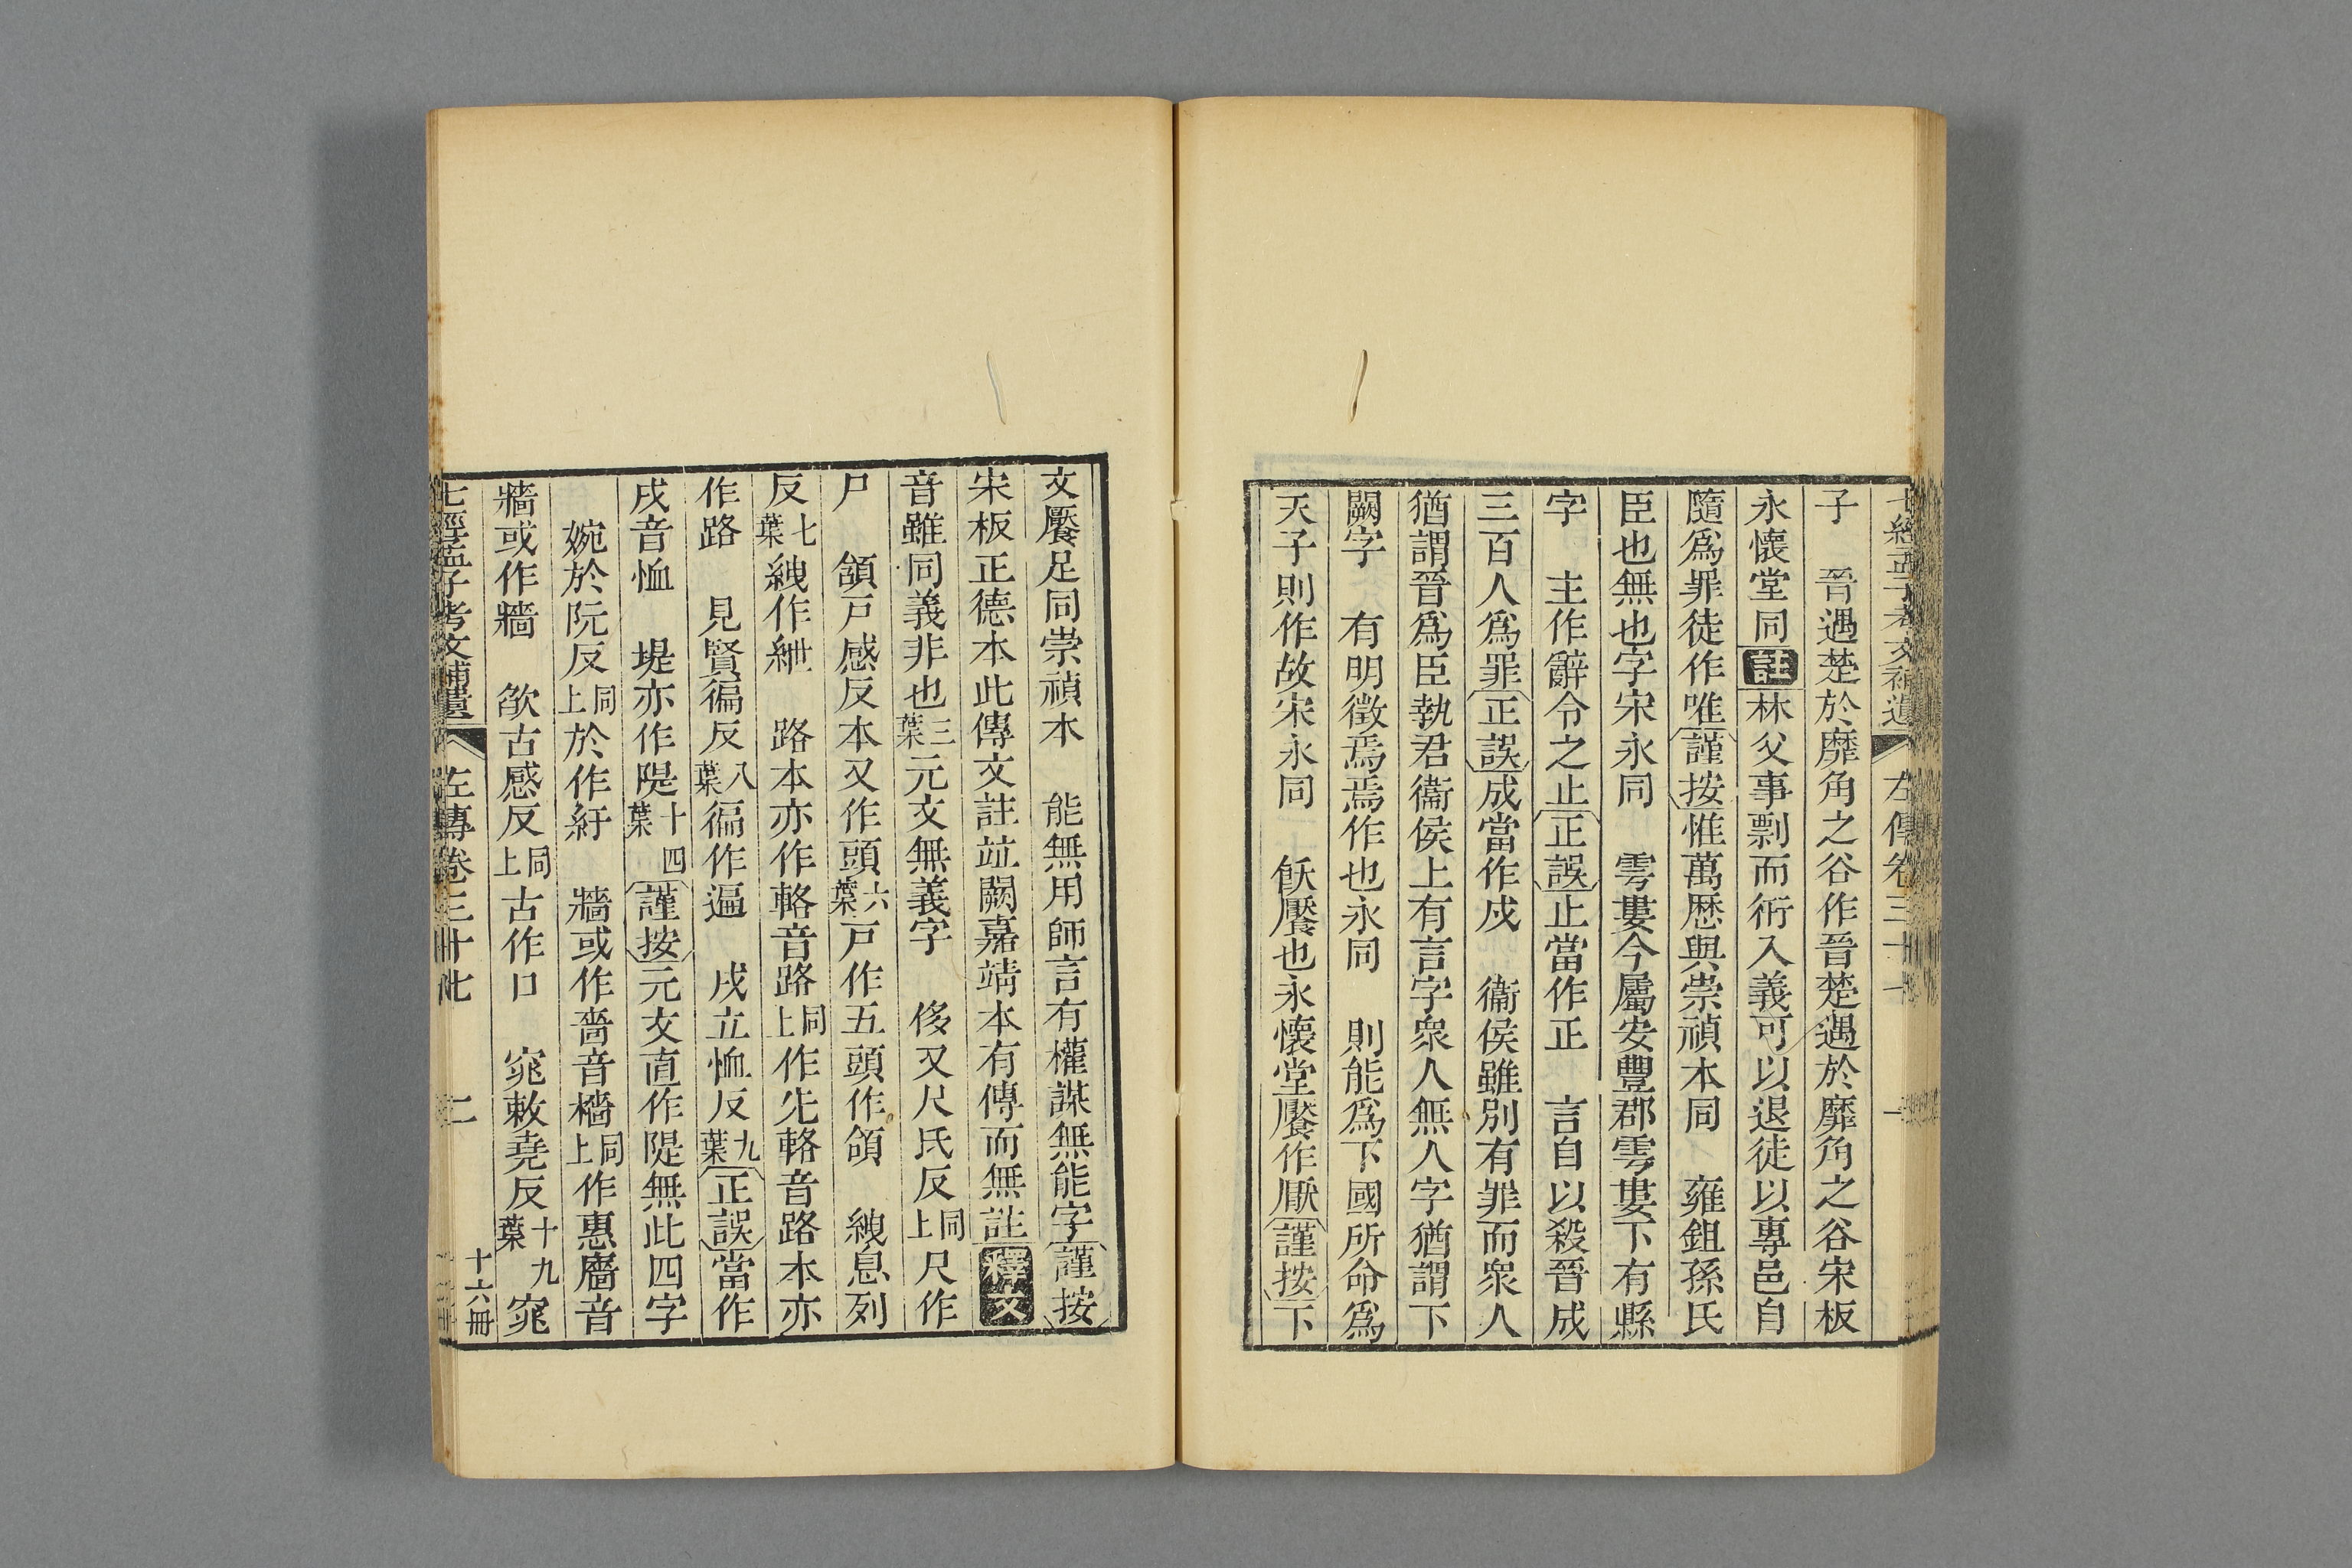 七經孟子考文補遺 左傳卷三十
子　晉遇楚於靡角之谷作晉楚遇於靡角之谷宋板
永懷堂同註林父事剽而衎入義可以退徒以專邑自
隨爲罪徒作唯謹按惟萬歷與崇禎本同　雍鉏孫氏
臣也無也字宋永同　雩婁今屬安豐郡雩婁下有縣
字　主作辭令之止正誤止當作正　言自以殺晉成
三百人爲罪正誤成當作戍　衞侯雖別有罪而衆人
猶謂晉爲臣執君衞侯上有言字衆人無人字猶謂下
闕字　有明徵焉焉作也永同　則能爲下國所命爲
天子則作故宋永同　飫饜也永懷堂饜作厭謹按下
文饜足同崇禎本　能無用師言有權謀無能字謹按
宋板正德本此傳文註竝闕嘉靖本有傳而無註釋文
音雖同義非也三葉元文無義字　侈又尺氏反同上尺作
尸　頷戸感反本又作頭六葉戸作五頭作頜　絏息列
反七葉絏作紲　路本亦作輅音路同上作先輅音路本亦
作路　見賢徧反八葉徧作遍　戌立恤反九葉正誤當作
戌音恤　堤亦作隄十四葉謹按元文直作隄無此四字
婉於阮反同上於作紆　牆或作嗇音檣同上作惠廧音
牆或作牆　欿古感反同上古作口　窕敕堯反十九葉窕
七經孟子考文補遺 左傳卷三十七 二 十六冊